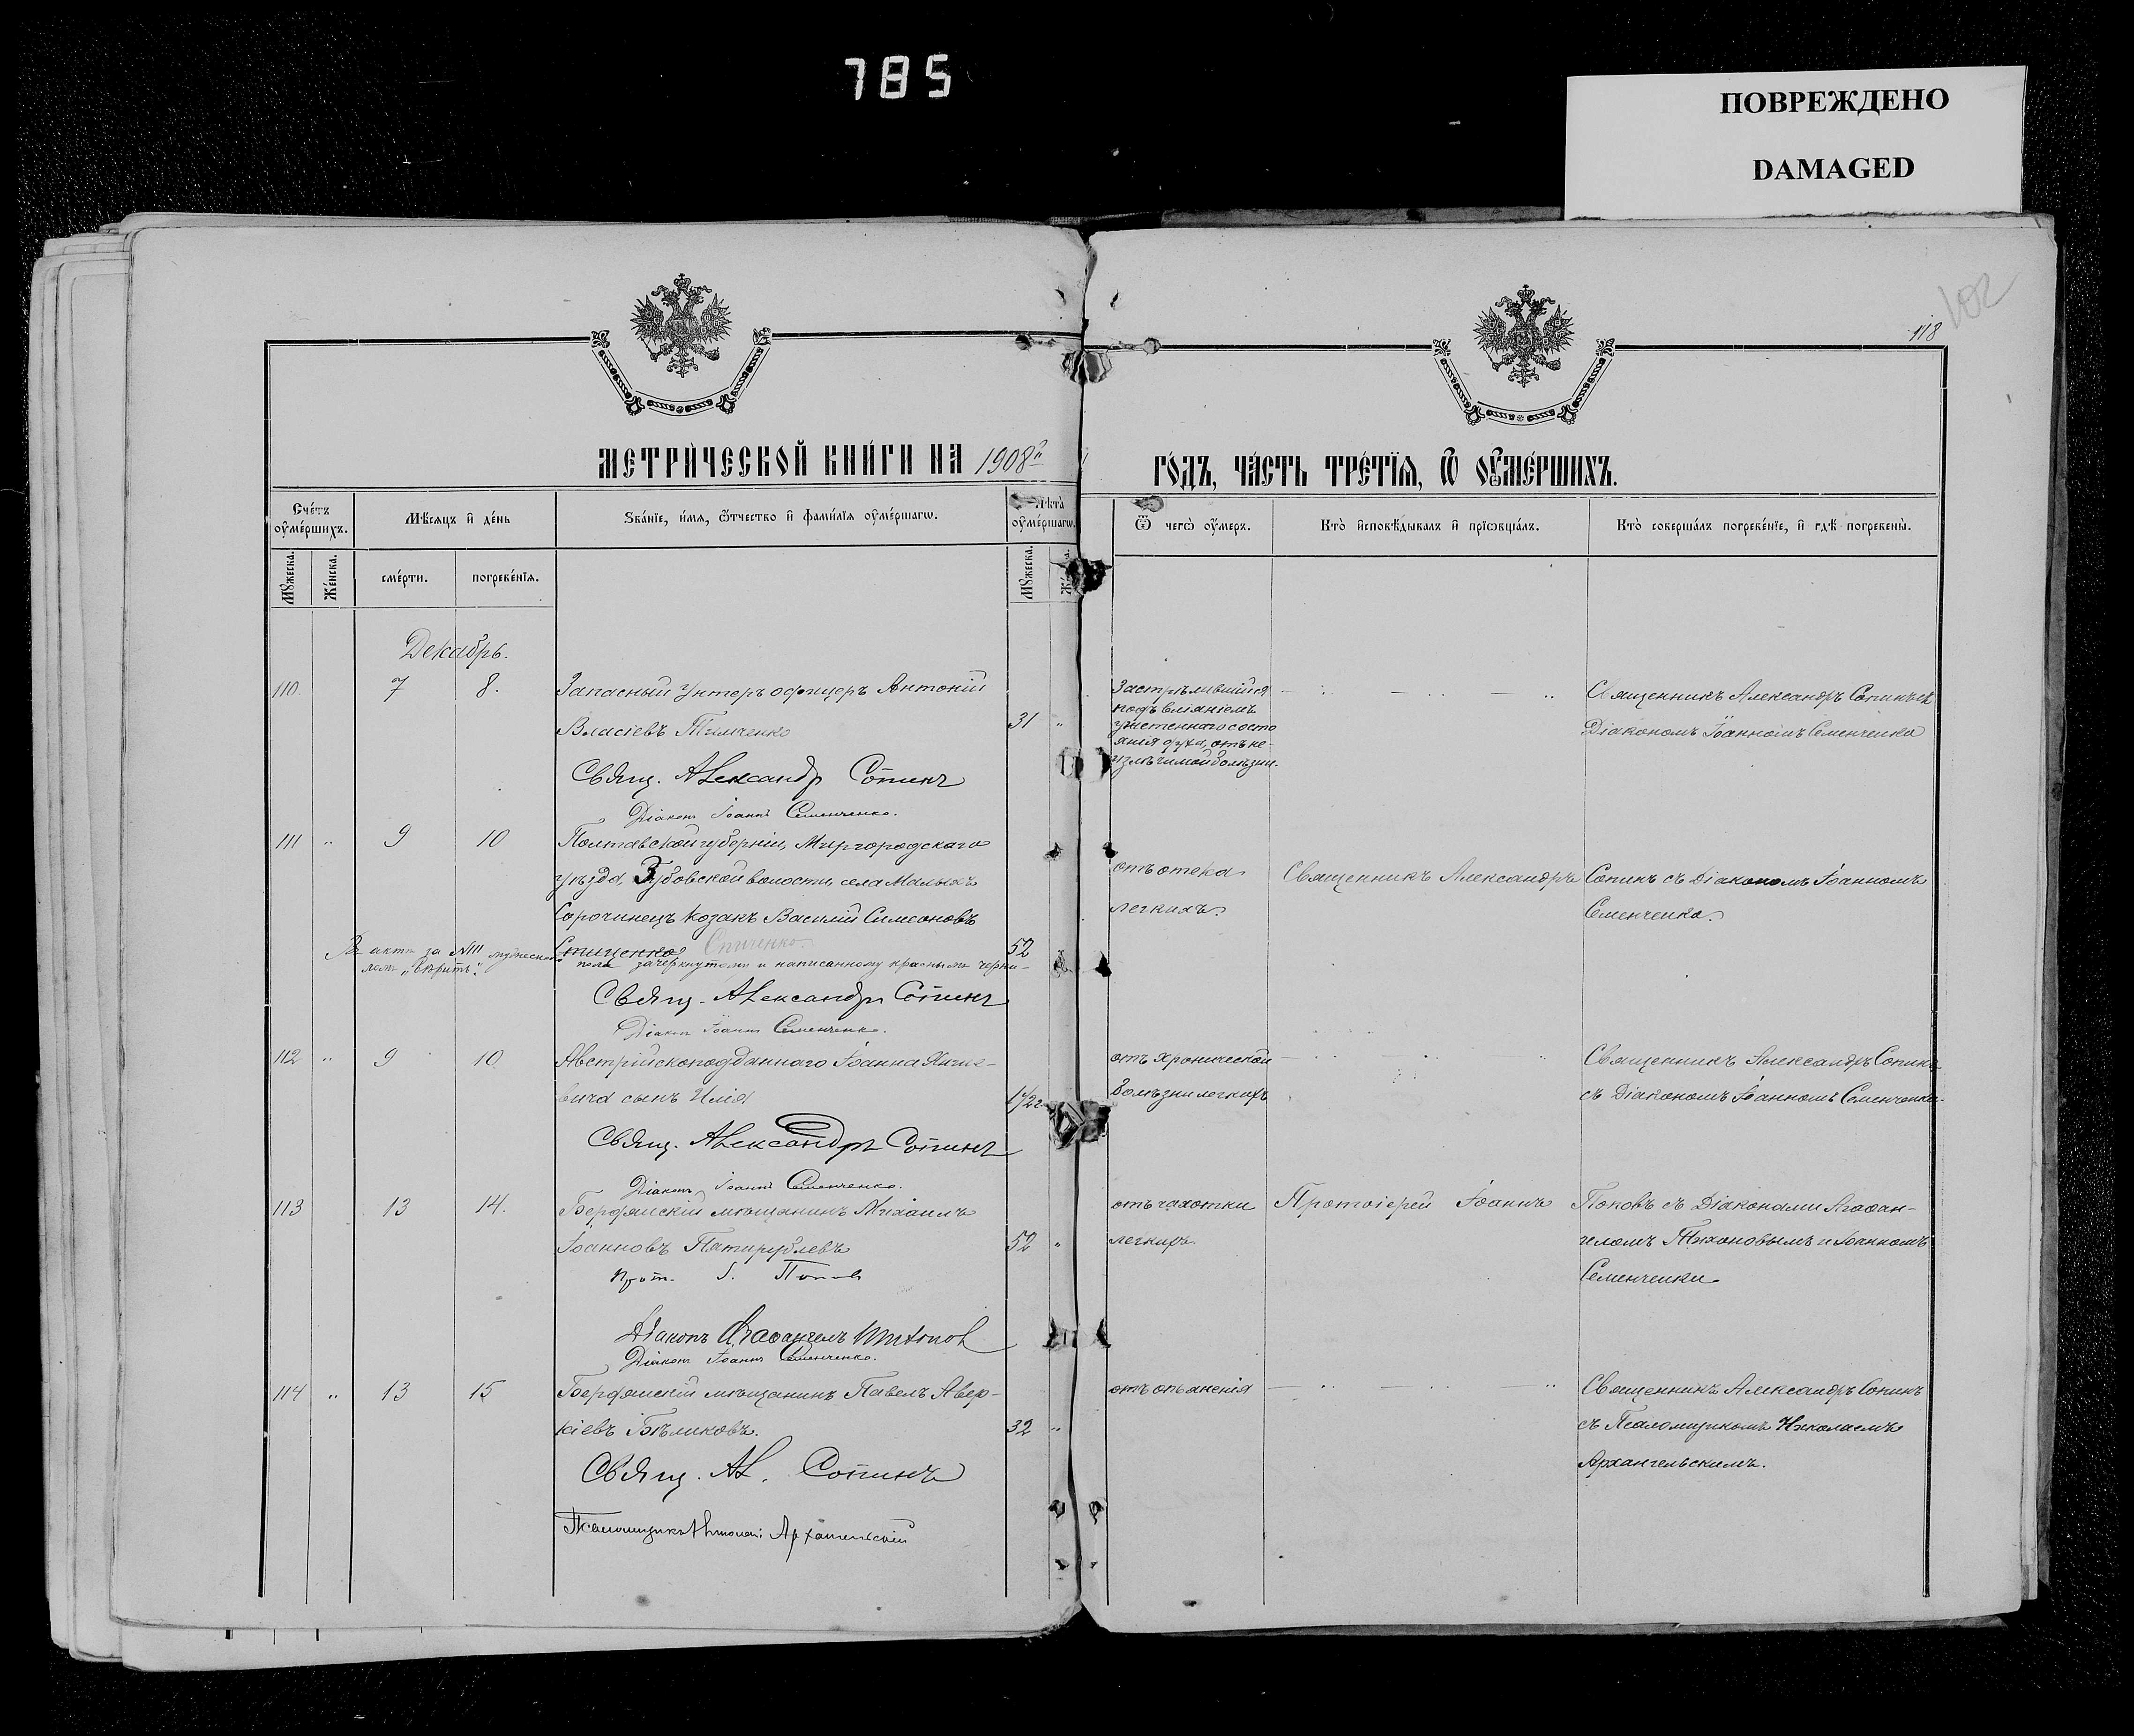 785
ПОВРЕЖДЕНО
DAMAGED
102
118
МЕТРИЧЕСКОЙ КНИГИ НА 1908й
ГОДЪ, ЧАСТЬ ТРЕТІЯ, Ѿ ОУМЕРШИХЪ.
Счетъ оумершихъ.
Мѣсяцъ и день
Званіе, имя, ѿтчество и фамилія оумершагѡ.
Лѣта оумершагѡ.
Ѿ чегѡ оумеръ.
Кто исповѣдывалъ и пріѡбщалъ.
Кто совершалъ погребеніе, и гдѣ погребены.
Мужеска.
Женска.
смерти.
погребенія.
Мужеска.
Декабрь.
110. 7 8. Запасный унтеръ офицеръ Антоній
Власіевъ Тимченко 31 "
Застрѣлившійся
подъ вліяніемъ
угнетеннаго состо
янія духа, отъ не-
излѣчимой болѣзни.
Священникъ Александръ Сопинъ съ
Діакономъ Іоанномъ Семенченко
Свящ. Александр Сопинъ
Діаконъ Іоаннъ Семенченко.
111 " 9 10 Полтавской губерніи, Миргородскаго
уѣзда, Зубовской волости, села Малыхъ
Сорочинецъ козакъ Василій Симеоновъ
Спиченко 52
отъ отека
легкихъ.
Священникъ Александръ Сопинъ съ Діакономъ Іоанномъ
Семенченко.
В актѣ за №111 мужеска пола зачеркнутому и написанному красными черни-
лами „вѣрить".
Свящ. Александръ Сопинъ
Діаконъ Іоаннъ Семенченко.
112 " 9 10 Австрійскоподданнаго Іоанна
вича сынъ Илія 1/22
отъ хронической
болѣзни легкихъ
Священникъ Александръ Сопинъ
съ Діакономъ Іоанномъ Семенченко.
Свящ. Александръ Сопинъ
Діаконъ Іоаннъ Семенченко.
113 13 14. Бердянскій мѣщанинъ Михаилъ
Іоанновъ 52 "
отъ чахотки
легкихъ
Протоіерей Іоаннъ Поповъ съ Діаконами Агаѳан-
геломъ Тихоновымъ и Іоанномъ
Семенченки.
Прот. І. Попов
Діаконъ Агаѳангелъ Тихонов
Діаконъ Іоаннъ Семенченко.
114 " 13 15 Бердянскій мѣщанинъ Павелъ Авер-
кіевъ Бѣликовъ. 32 "
отъ опьяненія
Священникъ Александръ Сопинъ
съ Псаломщикомъ Николаемъ
Архангельскимъ.
Свящ. Ал. Сопинъ
Псаломщикъ Николай Архангельскій